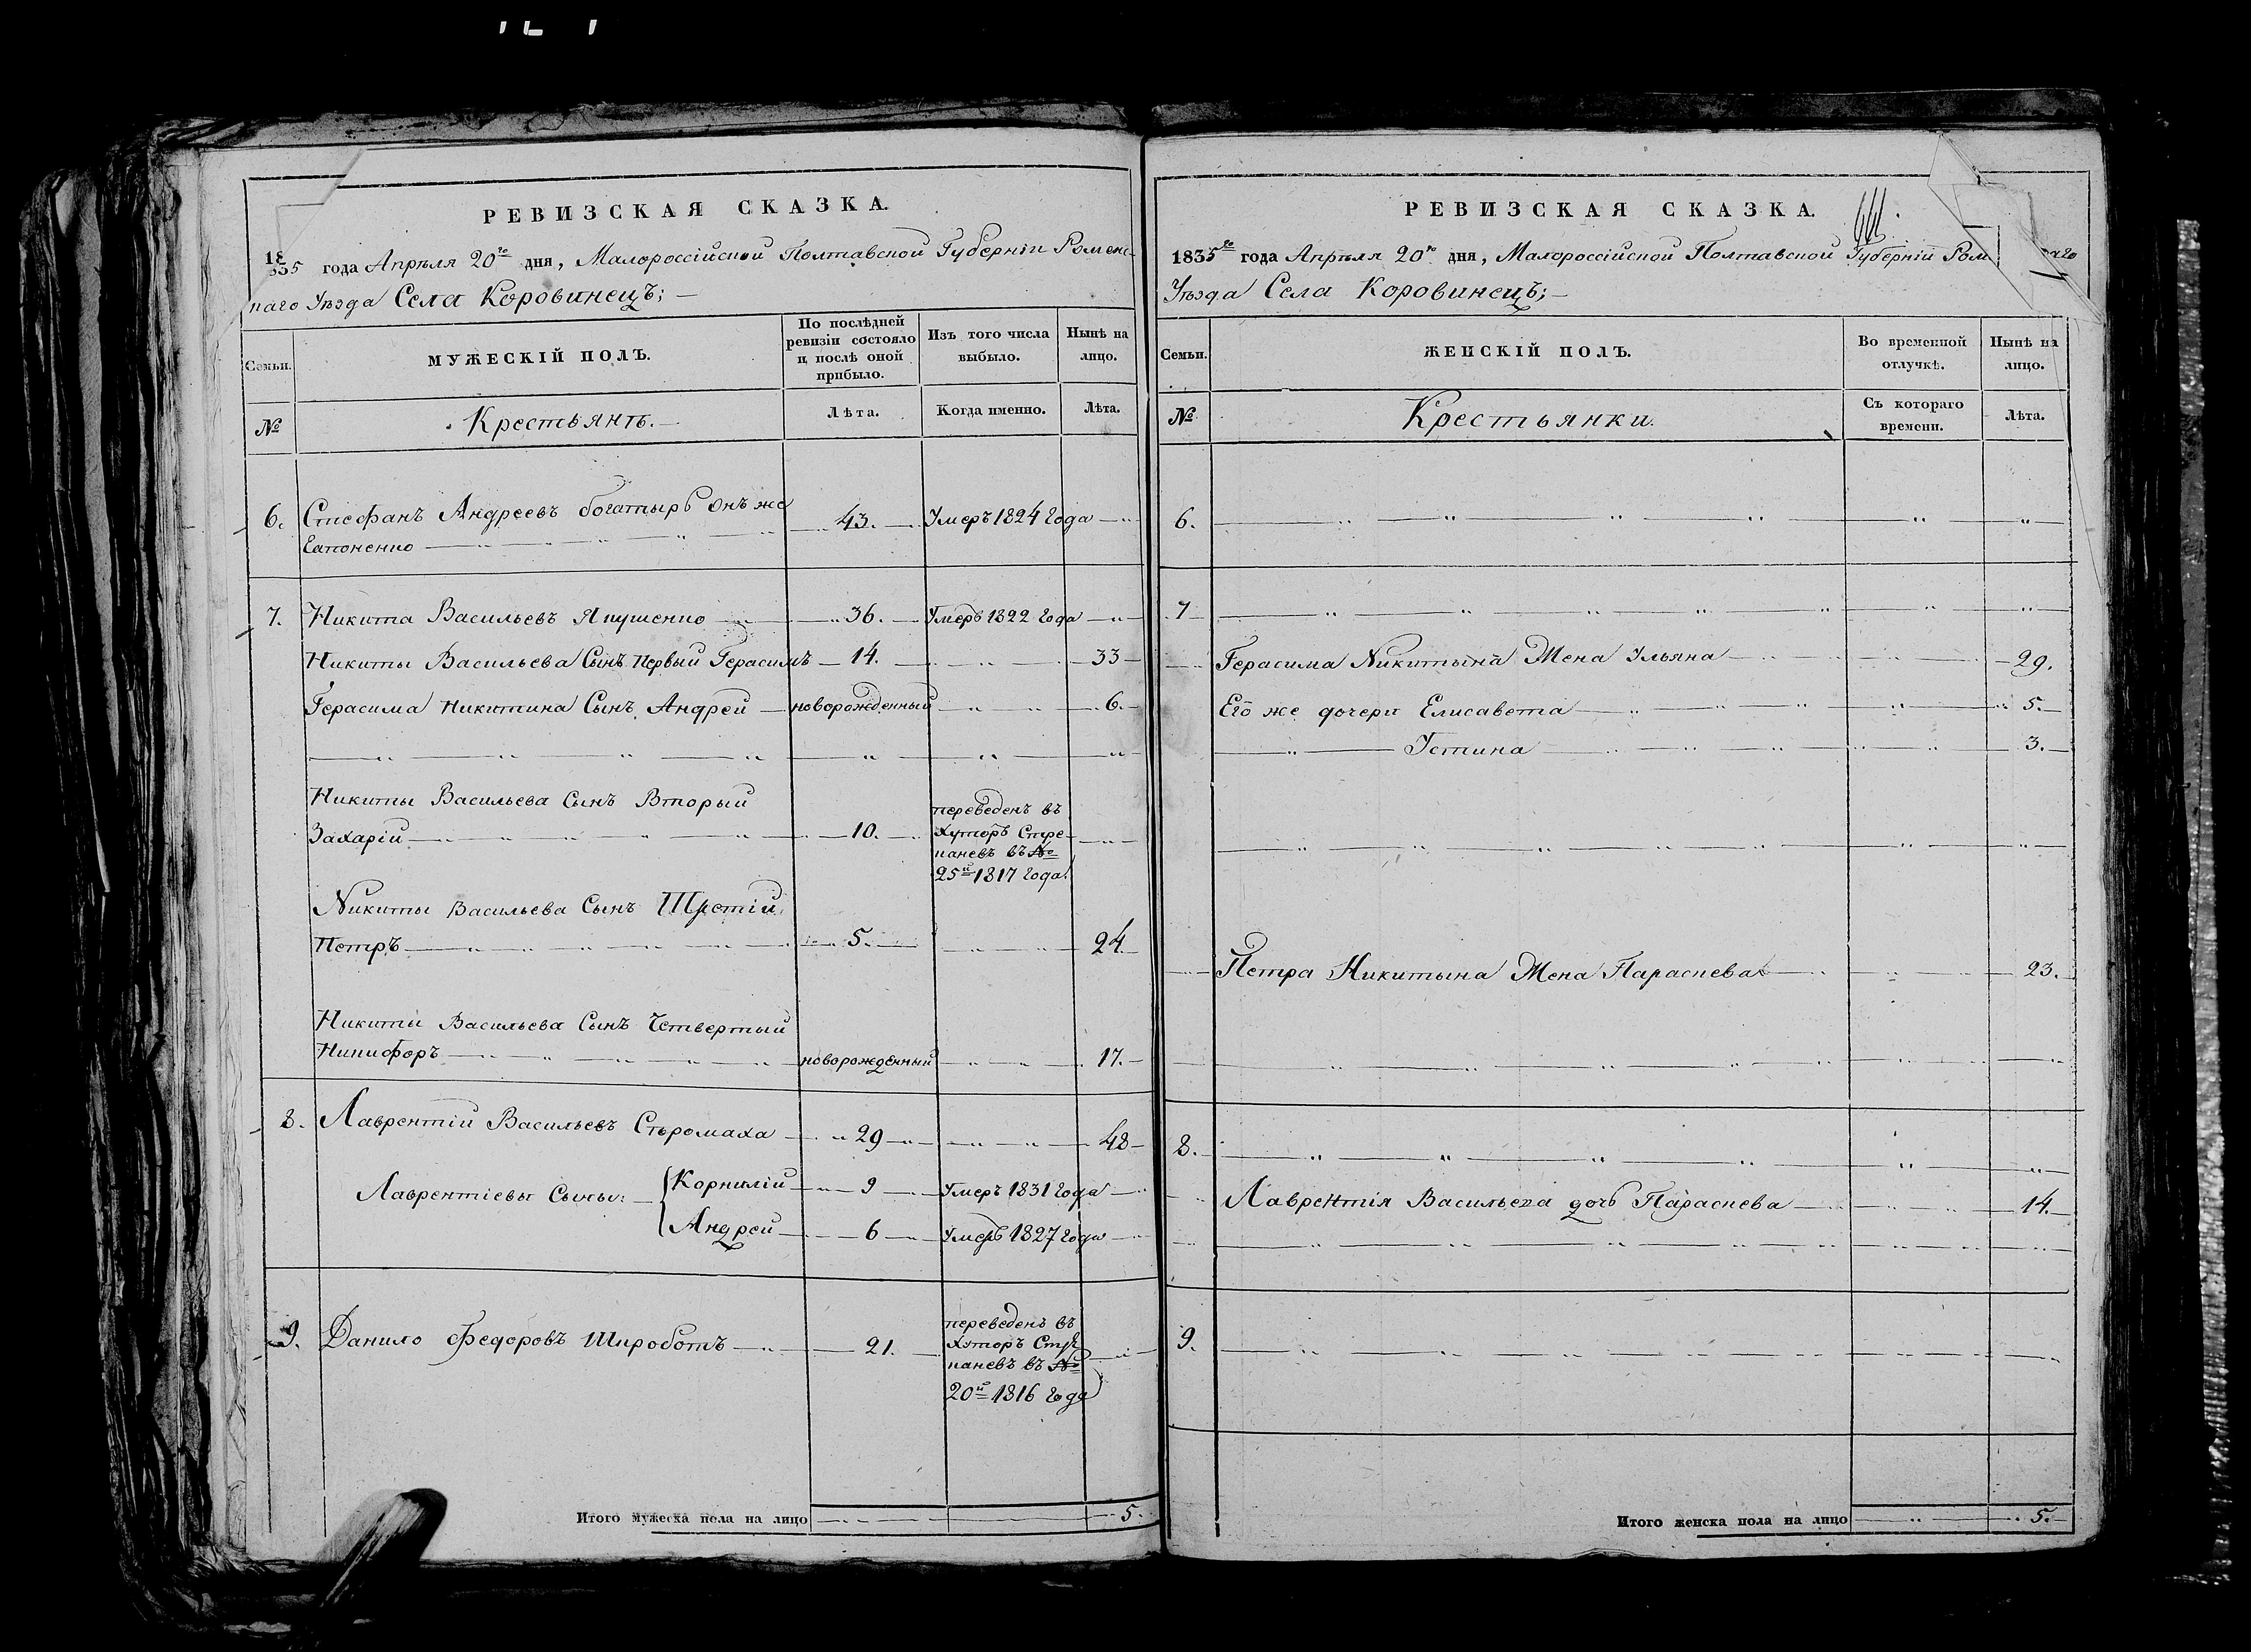 РЕВИЗСКАЯ СКАЗКА.
1835 года Апрѣля 20го дня, Малороссійской Полтавской Губерніи Роменс-
каго Уѣзда Села Коровинецъ;
Семьи.
МУЖЕСКІЙ ПОЛЪ.
По послѣдней
ревизіи состояло
и послѣ оной
прибыло.
Изъ того числа
выбыло.
Нынѣ на
лицо.
№
Крестьянъ.
Лѣта.
Когда именно.
Лѣта.
6. Стефанъ Андреевъ богатырь онъ же 43. Умеръ 1824 года
Гапоненко
7. Никита Васильевъ Якушенко 36. Умеръ 1822 года
Никиты Васильева Сынъ Первый Герасимъ 14. 33
Герасима Никитина Сынъ Андрей новорожденный 6.
Никиты Васильева Сынъ Вторый
Захарій 10. переведенъ въ
хуторъ Стре-
каневъ въ №
25й 1817 года.
Никиты Васильева Сынъ Третій
Петръ 5. 24.
Никиты Васильева Сынъ Четвертый
Никифоръ новорожденный 17.
8. Лаврентій Васильевъ Сѣромаха 29 48
Лаврентіевы Сыны: Корнилій 9 Умеръ 1831 года
Андрей 6 Умеръ 1827 года
9. Данило Федоровъ Широботъ 21. переведенъ въ
хуторъ Стре
каневъ въ №
20й 1816 года
Итого мужеска пола на лицо 5.
РЕВИЗСКАЯ СКАЗКА.
1835го года Апрѣля 20го дня, Малороссійской Полтавской Губерніи Ром каго
Уѣзда Села Коровинецъ;
Семьи.
ЖЕНСКІЙ ПОЛЪ.
Во временной
отлучкѣ.
Нынѣ на
лицо.
№
Крестьянки.
Съ котораго
времени.
Лѣта.
6.
7
Герасима Никитына Жена Ульяна 29.
Его же дочери Елисавета 5.
Устина 3.
Петра Никитына Жена Параскева 23.
8.
Лаврентія Васильева дочь Параскева 14.
9.
Итого женска пола на лицо 5.